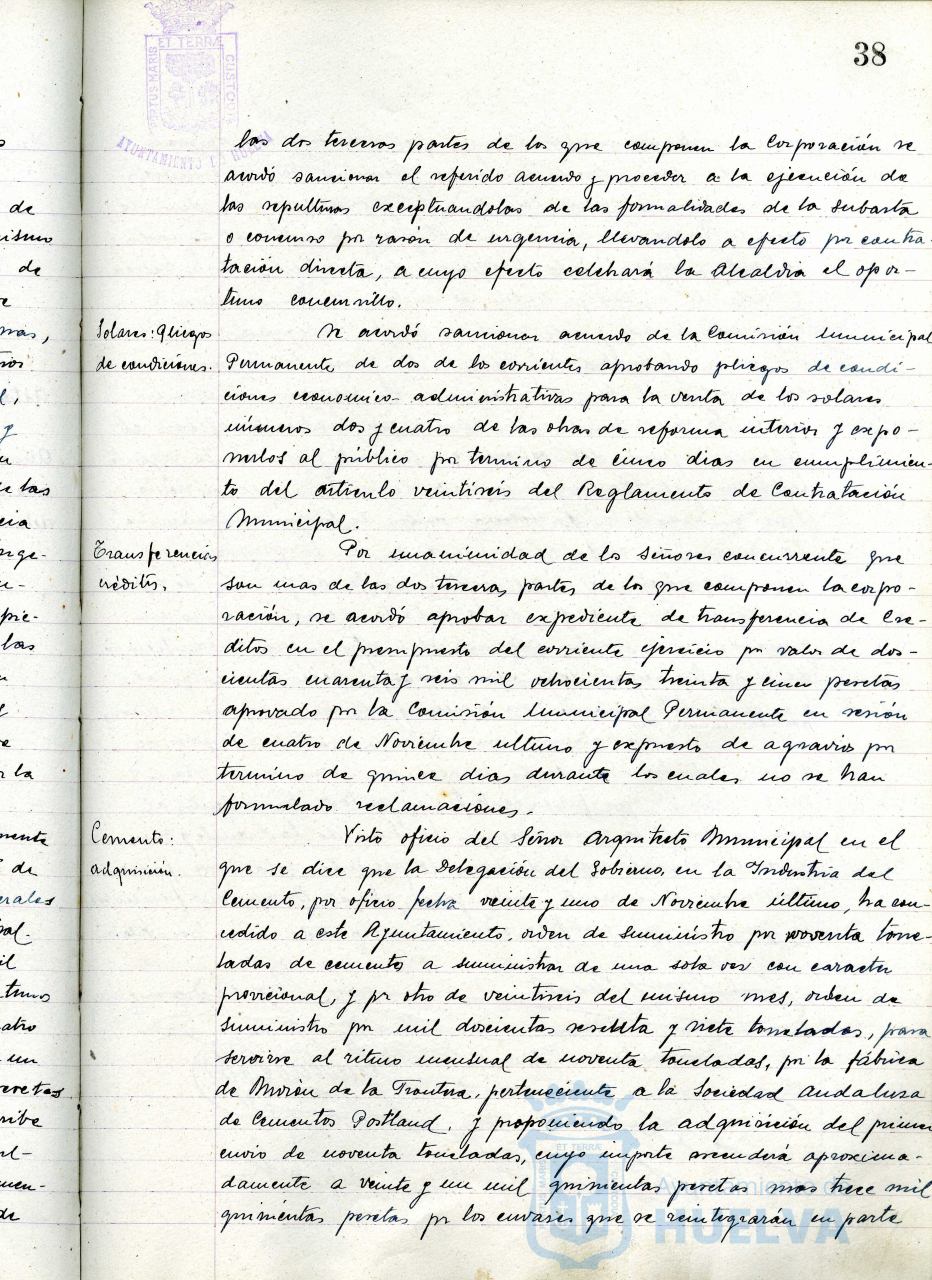 38
PORTUS MARIS ET TERRÆ CUSTODIA
AYUNTAMIENTO DE HUELVA
las dos terceras partes de los que componen la Corporación se
acordó sancionar el referido acuerdo y proceder a la ejecución de
las sepulturas exceptuandolas de las formalidades de la subasta
o concurso por razón de urgencia, llevandolo a efecto por contra-
tación directa, a cuyo efecto celebrará la Alcaldia el opor-
tuno concursillo.
Solares: Pliegos
de condiciones.
Se acordó sancionar acuerdo de la Comisión Municipal
Permanente de dos de los corrientes aprobando pliegos de condi-
ciones economico-administrativas para la venta de los solares
números dos y cuatro de las obras de reforma interior y expo-
nerlos al público por termino de cinco dias en cumplimien-
to del articulo veintiseis del Reglamento de Contratación
Municipal.
Transferencias
créditos.
Por unanimidad de los Señores concurrente que
son mas de las dos tercera partes de los que componen la corpo-
ración, se acordó aprobar expediente de transferencia de Cre-
ditos en el presupuesto del corriente ejercicio por valor de dos-
cientas cuarenta y seis mil ochocientas treinta y cinco pesetas
aprovado por la Comisión Municipal Permanente en sesión
de cuatro de Noviembre ultimo y expuesto de agravios por
termino de quince dias durante los cuales no se han
formulado reclamaciones.
Cemento:
adquisición.
Visto oficio del Señor Arquitecto Municipal en el
que se dice que la Delegación del Gobierno, en la Industria del
Cemento, por oficio fecha veinte y uno de Noviembre último, ha con-
cedido a este Ayuntamiento, orden de suministro por noventa tone-
ladas de cemento a suministrar de una sola vez con caracter
provicional, y pr otro de veintiseis del mismo mes, orden de
suministro por mil doscientas sesenta y siete toneladas, para
servirse al ritmo mensual de noventa toneladas, por la fábrica
de Morón de la Frontera, perteneciente a la Sociedad Andaluza
de Cementos Postland, y proponiendo la adquisición del primer
envio de noventa toneladas, cuyo importe ascenderá aproxima-
damente a veinte y un mil quinientas pesetas mas trece mil
quinientas pesetas pr los envases que se reintegrarán en parte
Ayuntamiento de
HUELVA